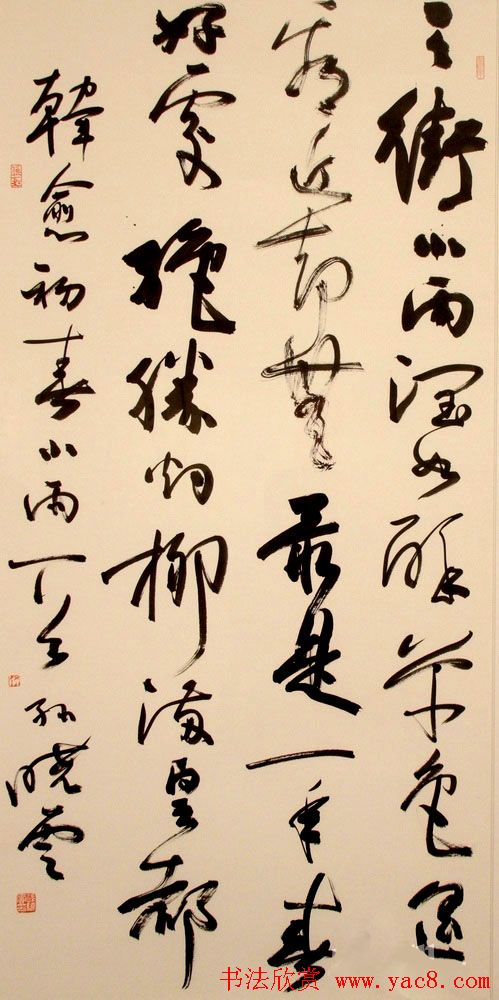 天街小雨潤如酥草色遥
看近却無最是一年春
好處絕勝烟柳滿皇都
韓愈初春小雨丁亥孫曉雲
书法欣赏 www.yac8.com